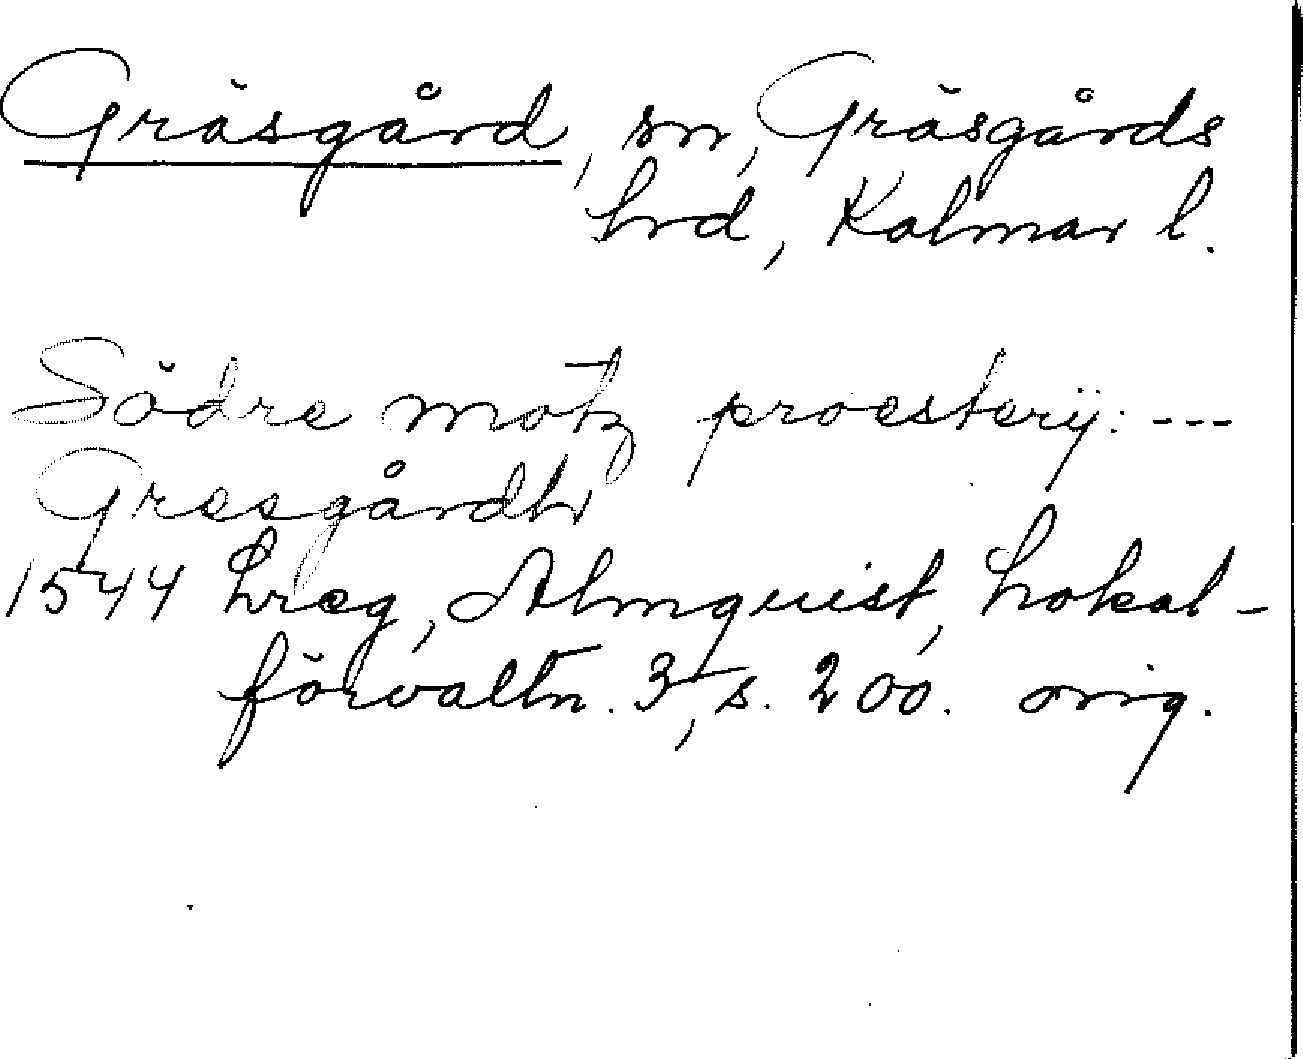 Gräsgård, sn, Gräsgårds
hrd, Kalmar l.
Södre motz proesterij: ---
Gresgårdh
1544 hreg, Almquist, Lokal-
förvaltn. 3, s. 200. orig.